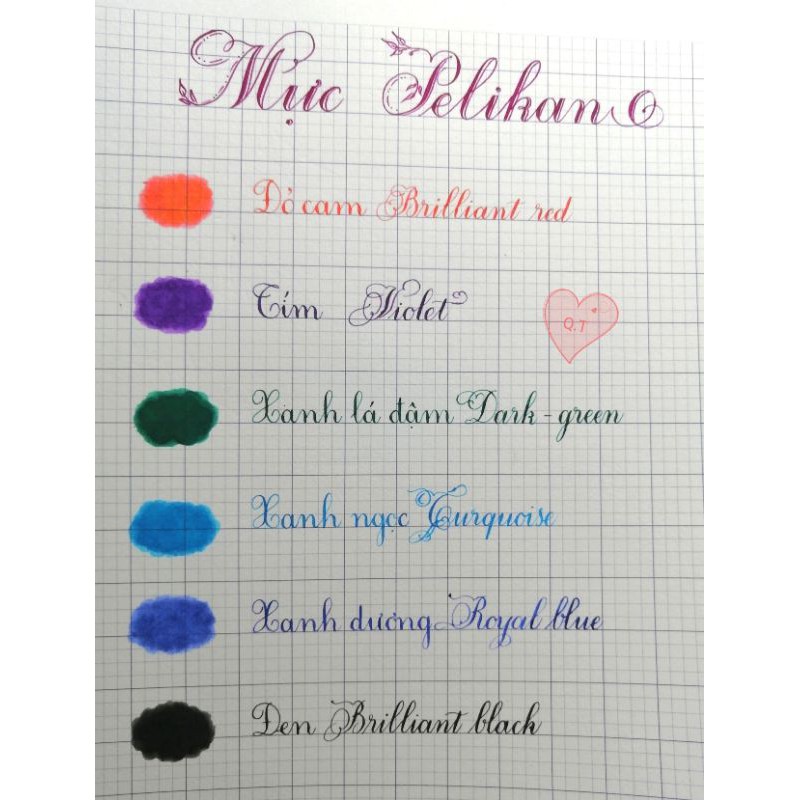 Mực Pelikan
Đỏ cam Brilliant red
Tím Violet
Q.T
Xanh lá đậm Dark-green
Xanh ngọc Turquoise
Xanh dương Royal blue
Đen Brilliant black